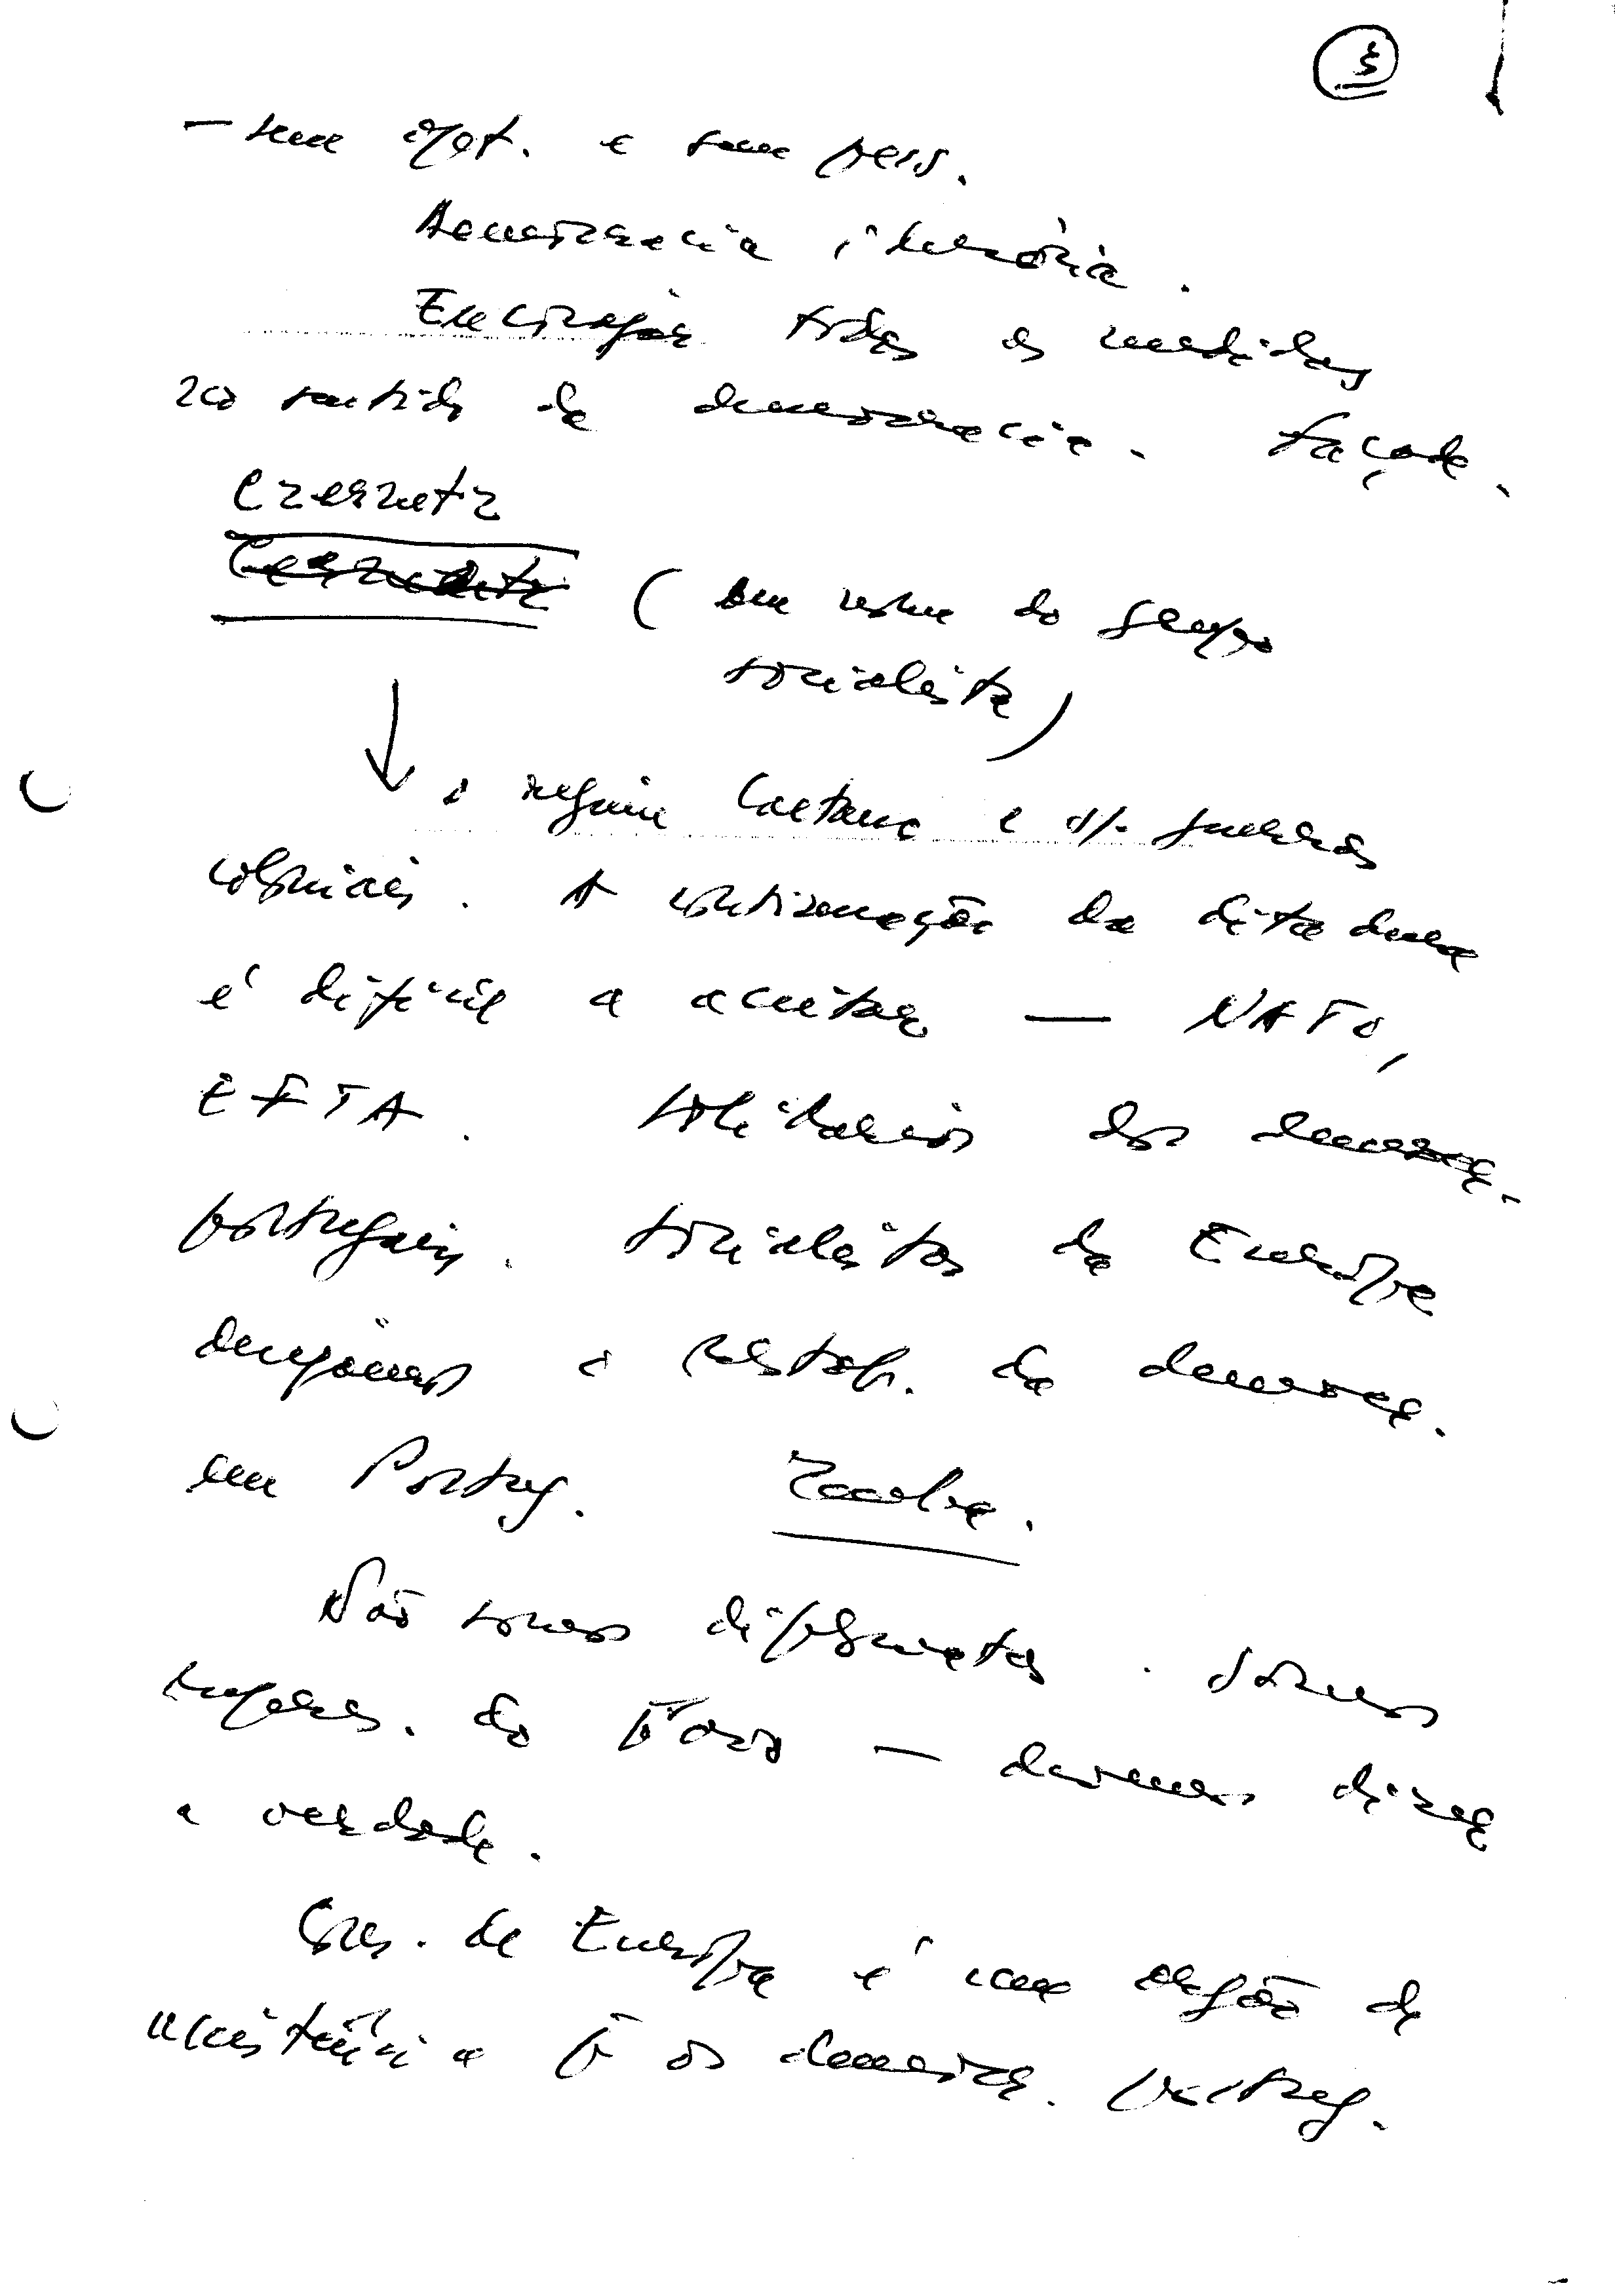 5
— sem opt. e sem pess.
Democracia ilusória.
Encorajar todas as medidas
no sentido da democracia. Façade.
Czernetz
(em nome do grupo
socialista)
o regime Caetano e as guerras
coloniais. A continuação da ditadura
é difícil a aceitar — NATO,
EFTA. Solidários dos democ.
portugueses. Socialistas da Europa
desejamos o restab. da democ.
em Portug.
Não somos diplomatas. Somos
do povo — devemos dizer
a verdade.
Cons. da Europa é um órgão de
os democr. Portug.